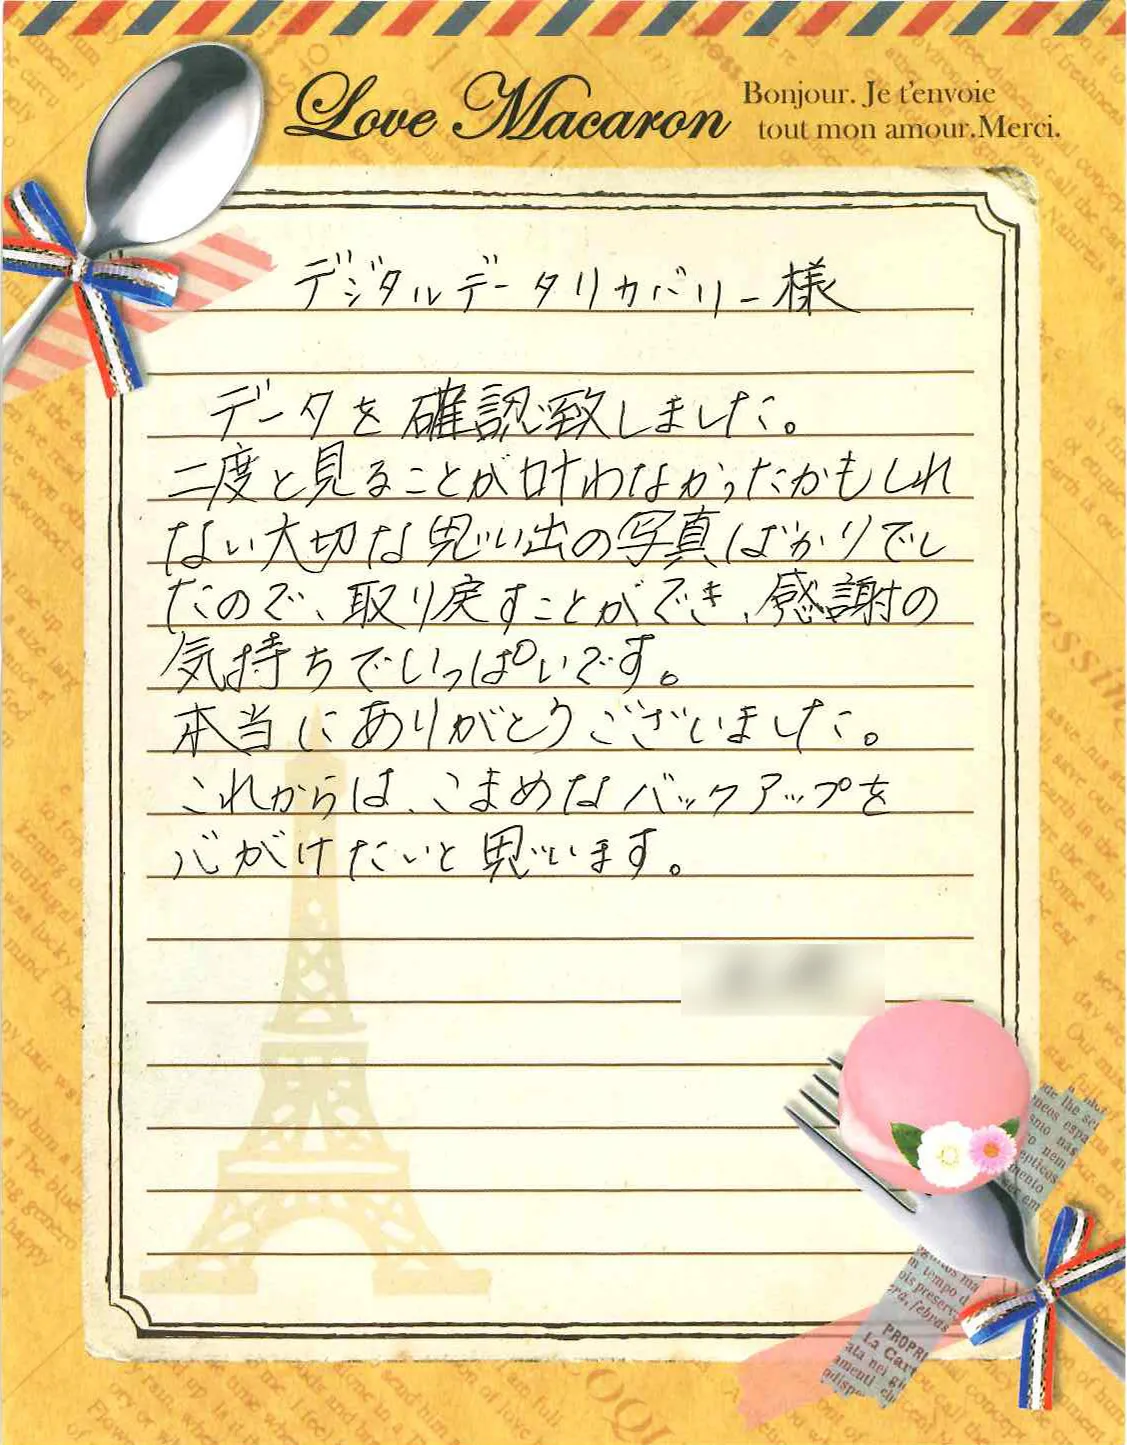 Love Macaron
Bonjour. Je t'envoie
tout mon amour.Merci.
デジタルデータリカバリー様
データを確認致しました。
二度と見ることが叶わなかったかもしれ
ない大切な思い出の写真ばかりでし
たので、取り戻すことができ、感謝の
気持ちでいっぱいです。
本当にありがとうございました。
これからは、こまめなバックアップを
心がけたいと思います。
PROPRI
La Cart